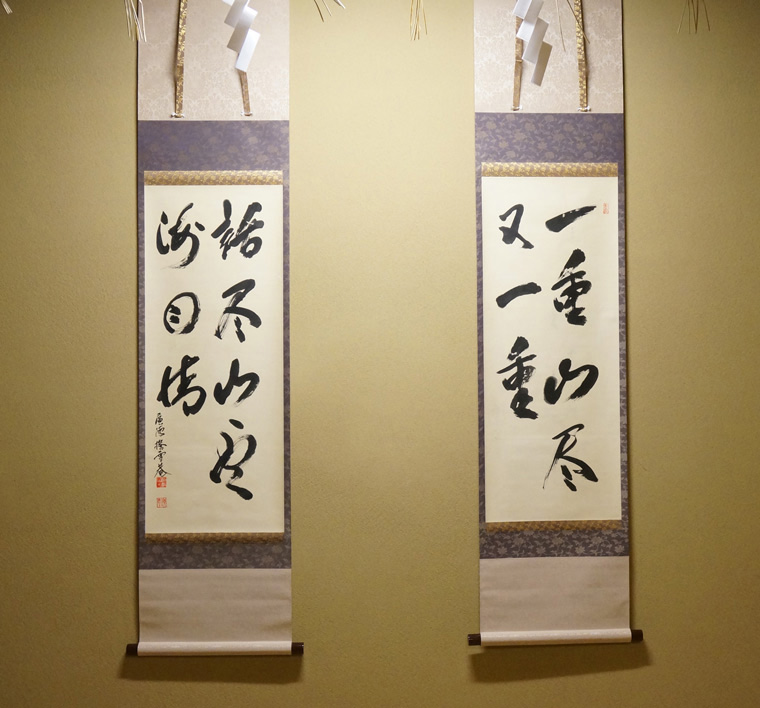 一重山尽
又一重
話尽山雲
海月情